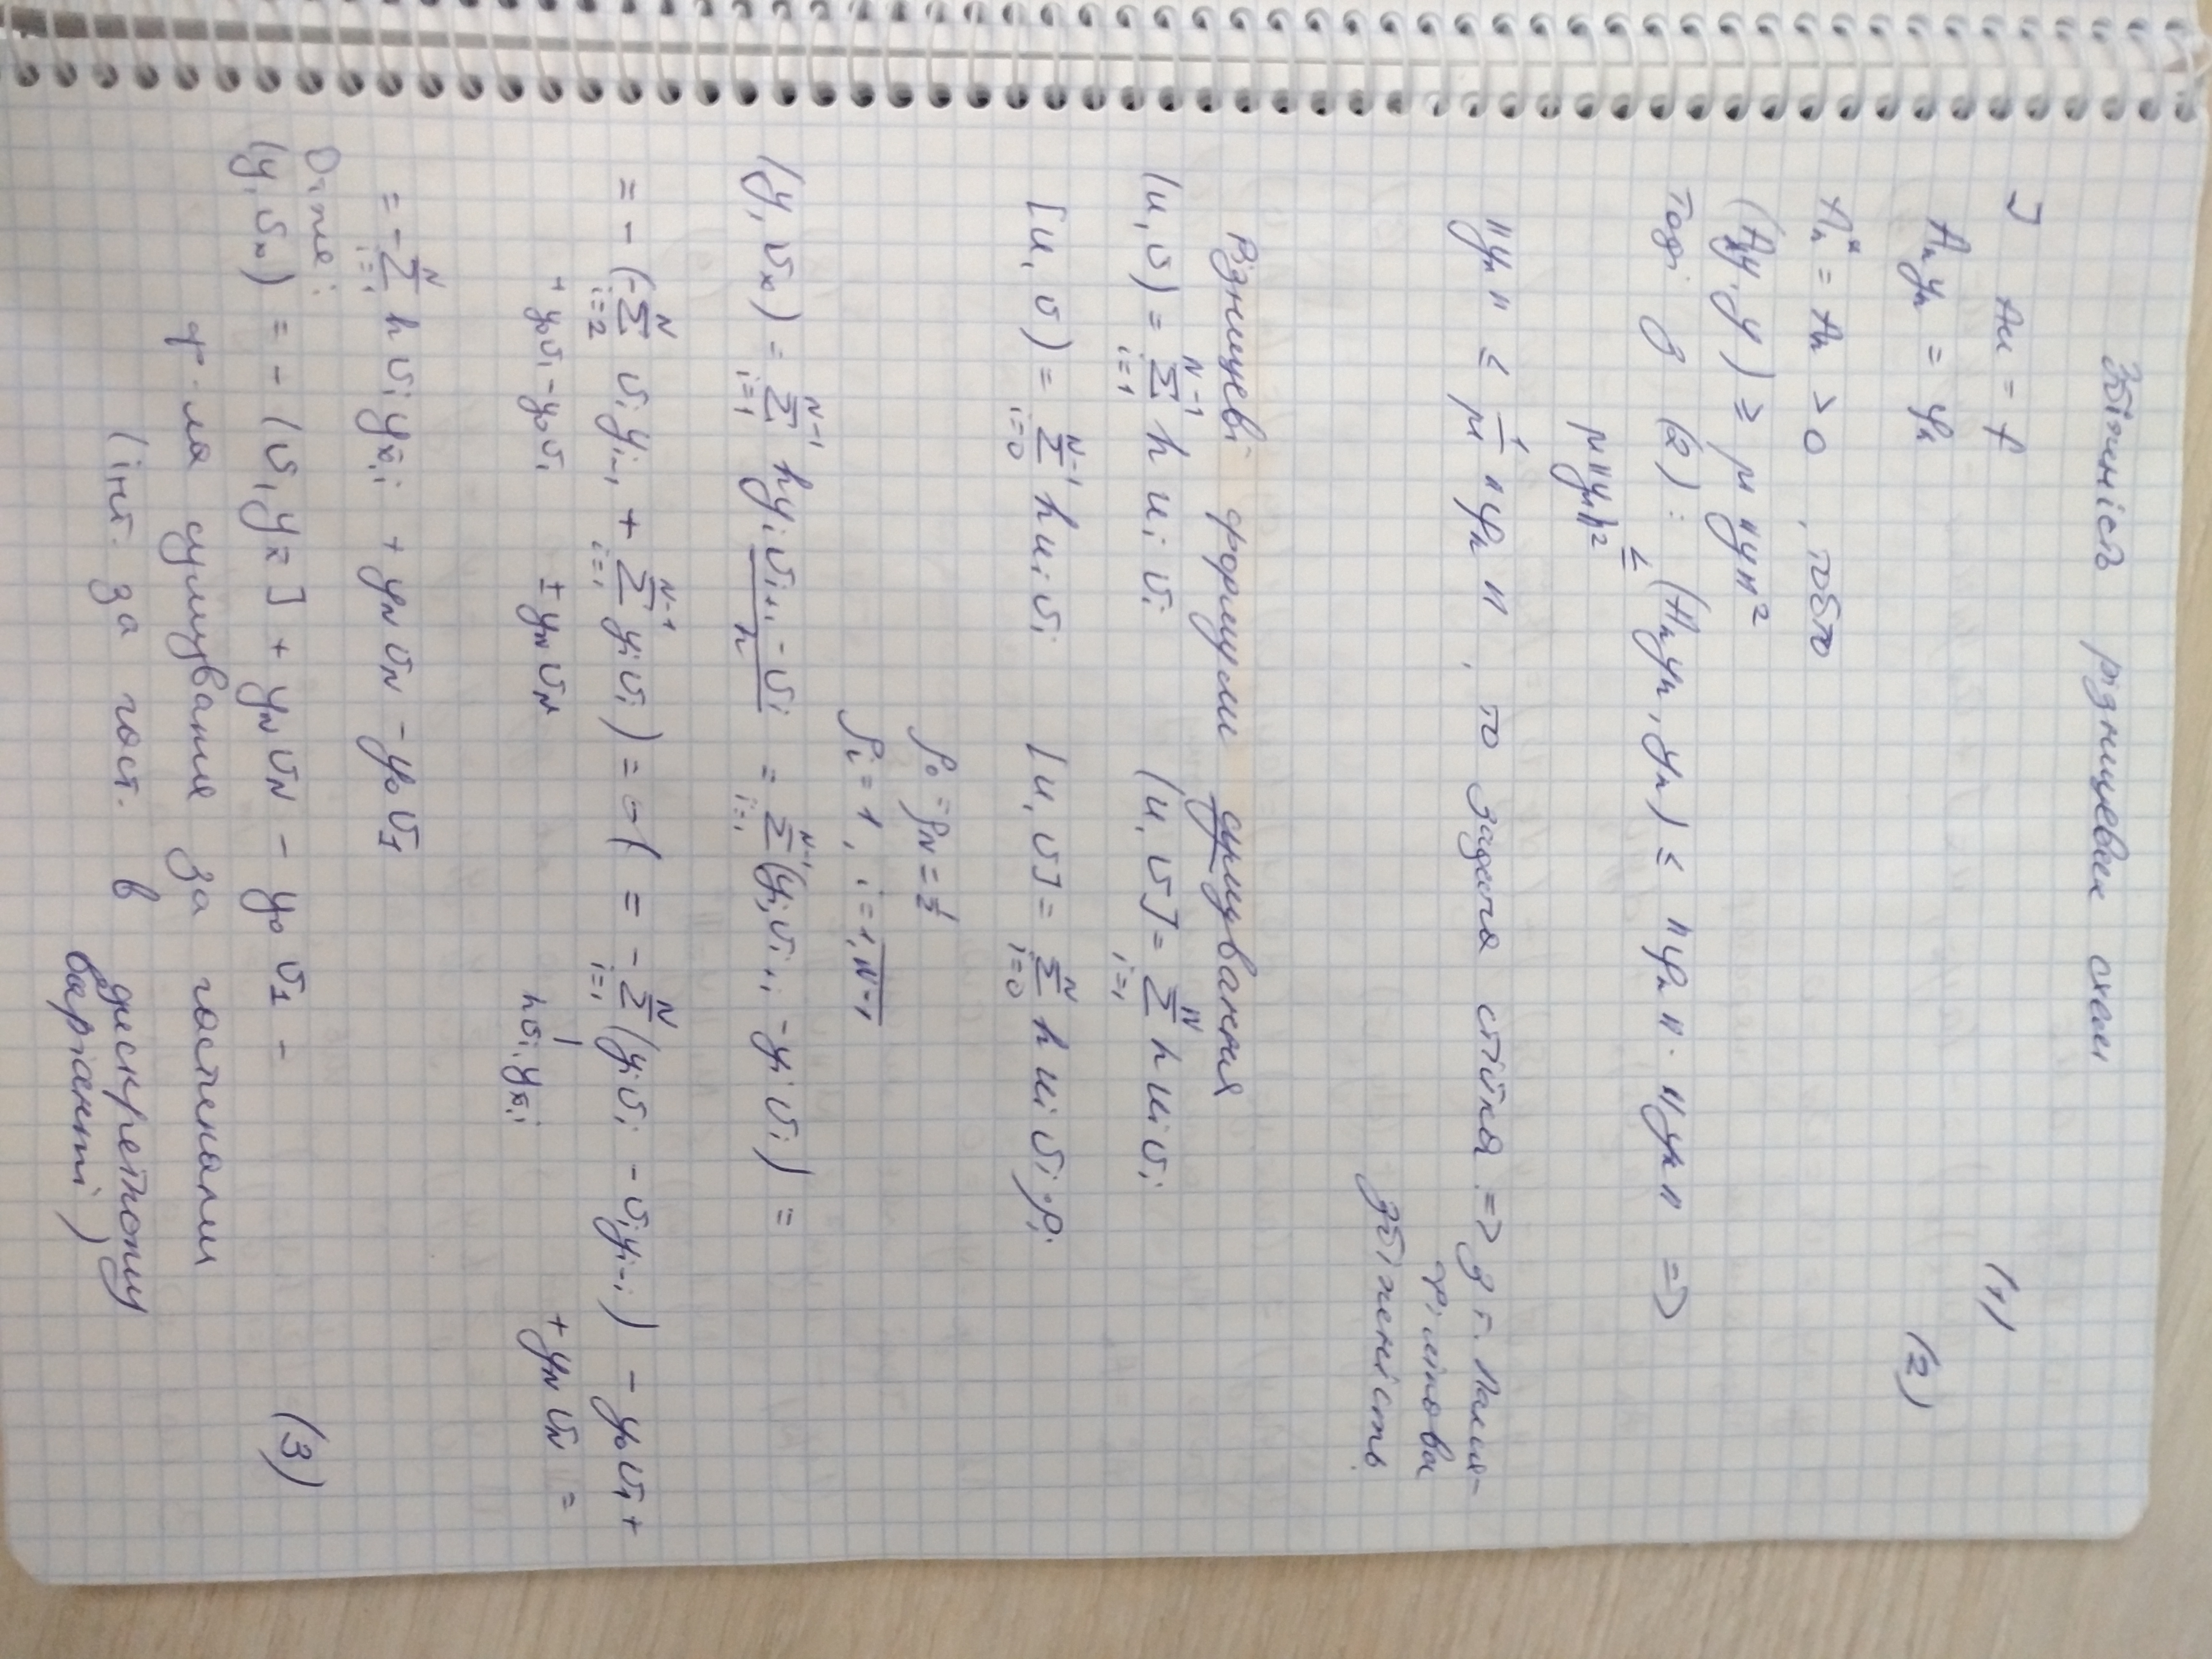 Збіжність різницевих схем
] Au = f (1)
Aₕyₕ = φₕ (2)
Aₕ* = Aₕ > 0, тобто
(Ay, y) ≥ μ ||y||²
Тоді з (2): μ||yₕ||² ≤ (Aₕyₕ, yₕ) ≤ ||φₕ|| · ||yₕ|| =>
||yₕ|| ≤ 1/μ ||φₕ||, то задача стійка => з т.
збіженість
Різницеві формули сумування
(u, v) = Σ_{i=1}^{N-1} h uᵢ vᵢ (u, v] = Σ_{i=1}^{N} h uᵢ vᵢ
[u, v) = Σ_{i=0}^{N-1} h uᵢ vᵢ [u, v] = Σ_{i=0}^{N} h uᵢ vᵢ ρᵢ
ρ₀ = ρ_N = 1/2
ρᵢ = 1, i = 1, N-1
(y, vₓ) = Σ_{i=1}^{N-1} h yᵢ (vᵢ₊₁ - vᵢ)/h = Σ_{i=1}^{N-1} (yᵢ vᵢ₊₁ - yᵢ vᵢ) =
= - (-Σ_{i=2}^{N} vᵢ yᵢ₋₁ + Σ_{i=1}^{N-1} yᵢ vᵢ) = = - Σ_{i=1}^{N} (yᵢ vᵢ - vᵢ yᵢ₋₁) - y₀ v₁ +
+ y₀ v₁ - y₀ v₁ ± y_N v_N h vᵢ y_x̄,ᵢ + y_N v_N =
= - Σ_{i=1}^{N} h vᵢ y_x̄,ᵢ + y_N v_N - y₀ v₁
Отже:
(y, vₓ) = - (v, y_x̄] + y_N v_N - y₀ v₁ - (3)
ф-ла сумування за частинами
(інт. за част. в дискретному
варіанті)